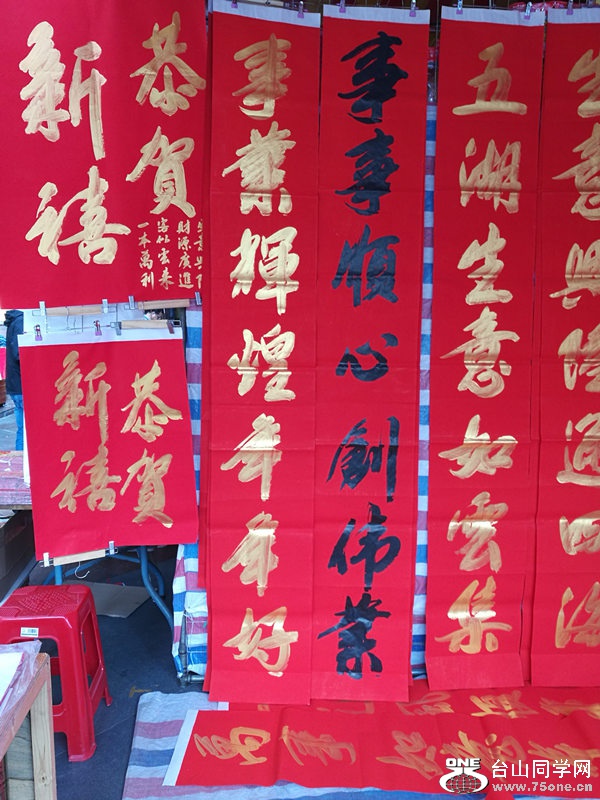 恭賀
新禧
生意興隆
財源廣進
客似雲來
一本萬利
恭賀
新禧
事業輝煌年年好
事事順心創伟業
五湖生意如雲集
生意興隆通四海
萬事如意
ONE
台山同学网
www.75one.cn